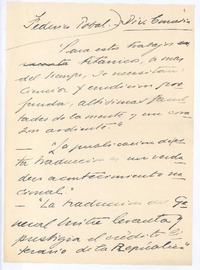 Federico Tobal.) Dice Comedia
"Para este trabajo
titánico, a mas
del tiempo, se necesitan
ciencia y erudicion pro-
funda, altísimas facul-
tades de la mente y un co-
razon ardiente"
— "La publicacion de
tu traduccion es un verda-
dero acontecimiento na-
cional"
— "La traduccion del Ge-
neral Mitre levanta y
prestigia el crédito li-
terario de la República"